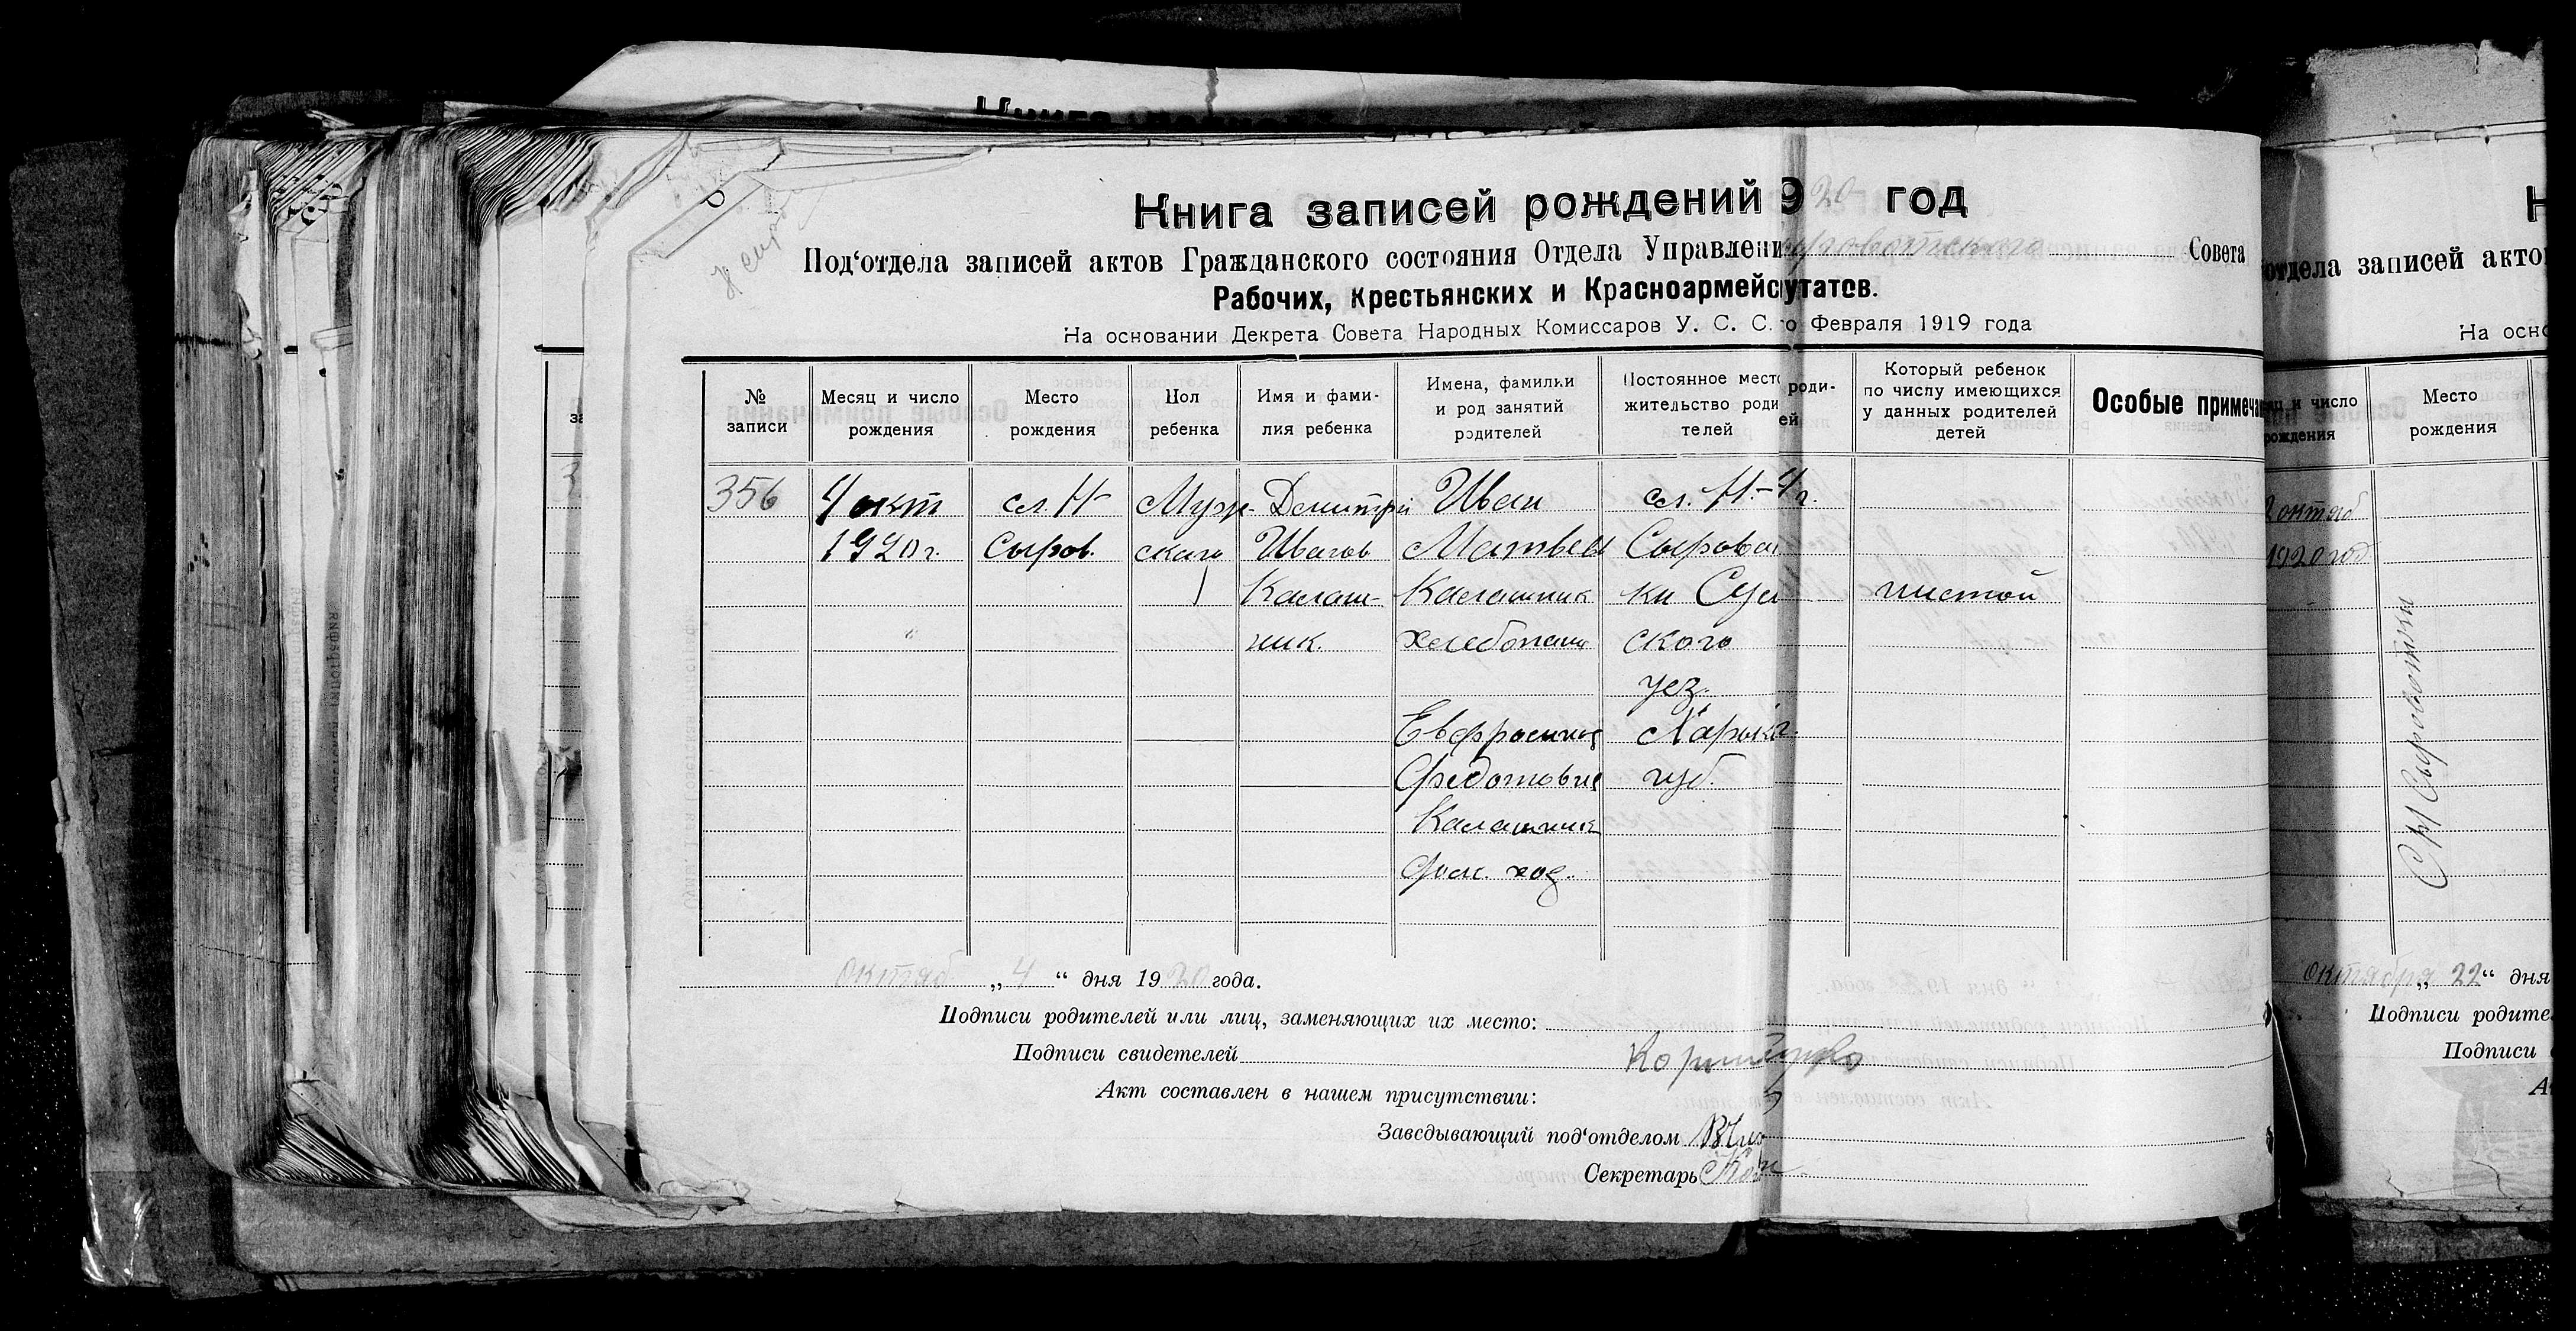 Книга записей рождений 1920 год
Под'отдела записей актов Гражданского состояния Отдела Управлени Совета
Рабочих, Крестьянских и Красноармейс утатов.
На основании Декрета Совета Народных Комиссаров У. С. С. го Февраля 1919 года
№ записи
Месяц и число рождения
Место рождения
Пол ребенка
Имя и фами-
лия ребенка
Имена, фамилии
и род занятий
родителей
Постоянное место
жительство роди
телей
Который ребенок
по числу имеющихся
у данных родителей
детей
Особые примеча
356 4 окт сл. Н- Муж- Димитрий Иван сл. Н.-
1920 г. Сыров. ского Иванов Матвеев Сыроват
Калаш- Калашник ки Сум шестой
ник. хлебопаш ского
уез.
Евфросиния Харьк
Федотовна губ.
Калашник
дом. хоз.
октяб „4“ дня 1920 года.
Подписи родителей или лиц, заменяющих их место:
Подписи свидетелей
Акт составлен в нашем присутствии:
Заведывающий под'отделом
Секретарь
отдела записей акто
На осно
и число
рождения
Место
рождения
2 октяб
1920 год
Сыроватки
октября „22“ дня
Подписи родите
Подписи